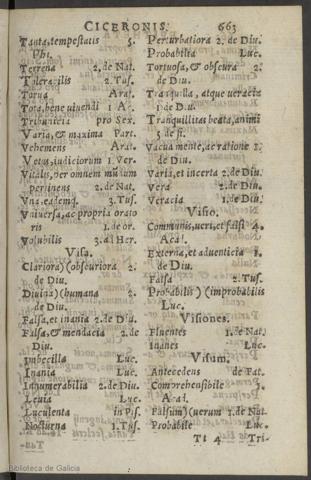 CICERONIS. 663
Tanta, tempestatis 5.
Phi.
Terrena 2. de Nat.
Tolerabilis 2. Tus.
Torua Arat.
Tota, bene uiuendi 1 Ac.
Tribunicia pro Sex.
Varia, & maxima Part.
Vehemens Arat.
Vetus, iudiciorum 1. Ver.
Vitalis, per omnem mūdum
pertinens 2. de Nat.
Vna, eademq. 3. Tus.
Vniuersa, ac propria orato
ris 1. de or.
Volubilis 3. ad Her.
Visa.
Clariora)(obscuriora 2.
de Diu.
Diuina)(humana 2.
de Diu.
Falsa, et inania 2. de Diu.
Falsa, & mendacia 2. de
Diu.
Imbecilla Luc.
Inania Luc.
Innumerabilia 2. de Diu.
Leuia Luc.
Luculenta in Pis.
Nocturna 1. Tus.
Perturbatiora 2. de Diu.
Probabilia Luc.
Tortuosa, & obscura 2.
de Diu.
Tranquilla, atque ueracia
1. de Diu.
Tranquillitas beata, animi
5 de fi.
Vacua mente, ac ratione 2.
de Diu.
Varia, et incerta 2. de Diu.
Vera 2. de Diu.
Veracia 1. de Diu.
Visio.
Communis, ueri, et falsi 4.
Acad.
Externa, et aduenticia 1.
de Diu.
Falsa 2. Tus.
Probabilis)(improbabilis
Luc.
Visiones.
Fluentes 1. de Nat.
Inanes Luc.
Visum.
Antecedens de Fat.
Comprehensibile 3.
Acad.
Falsum)(uerum 2. de Nat.
Probabile Luc.
Tt 4 Tri-
Biblioteca de Galicia